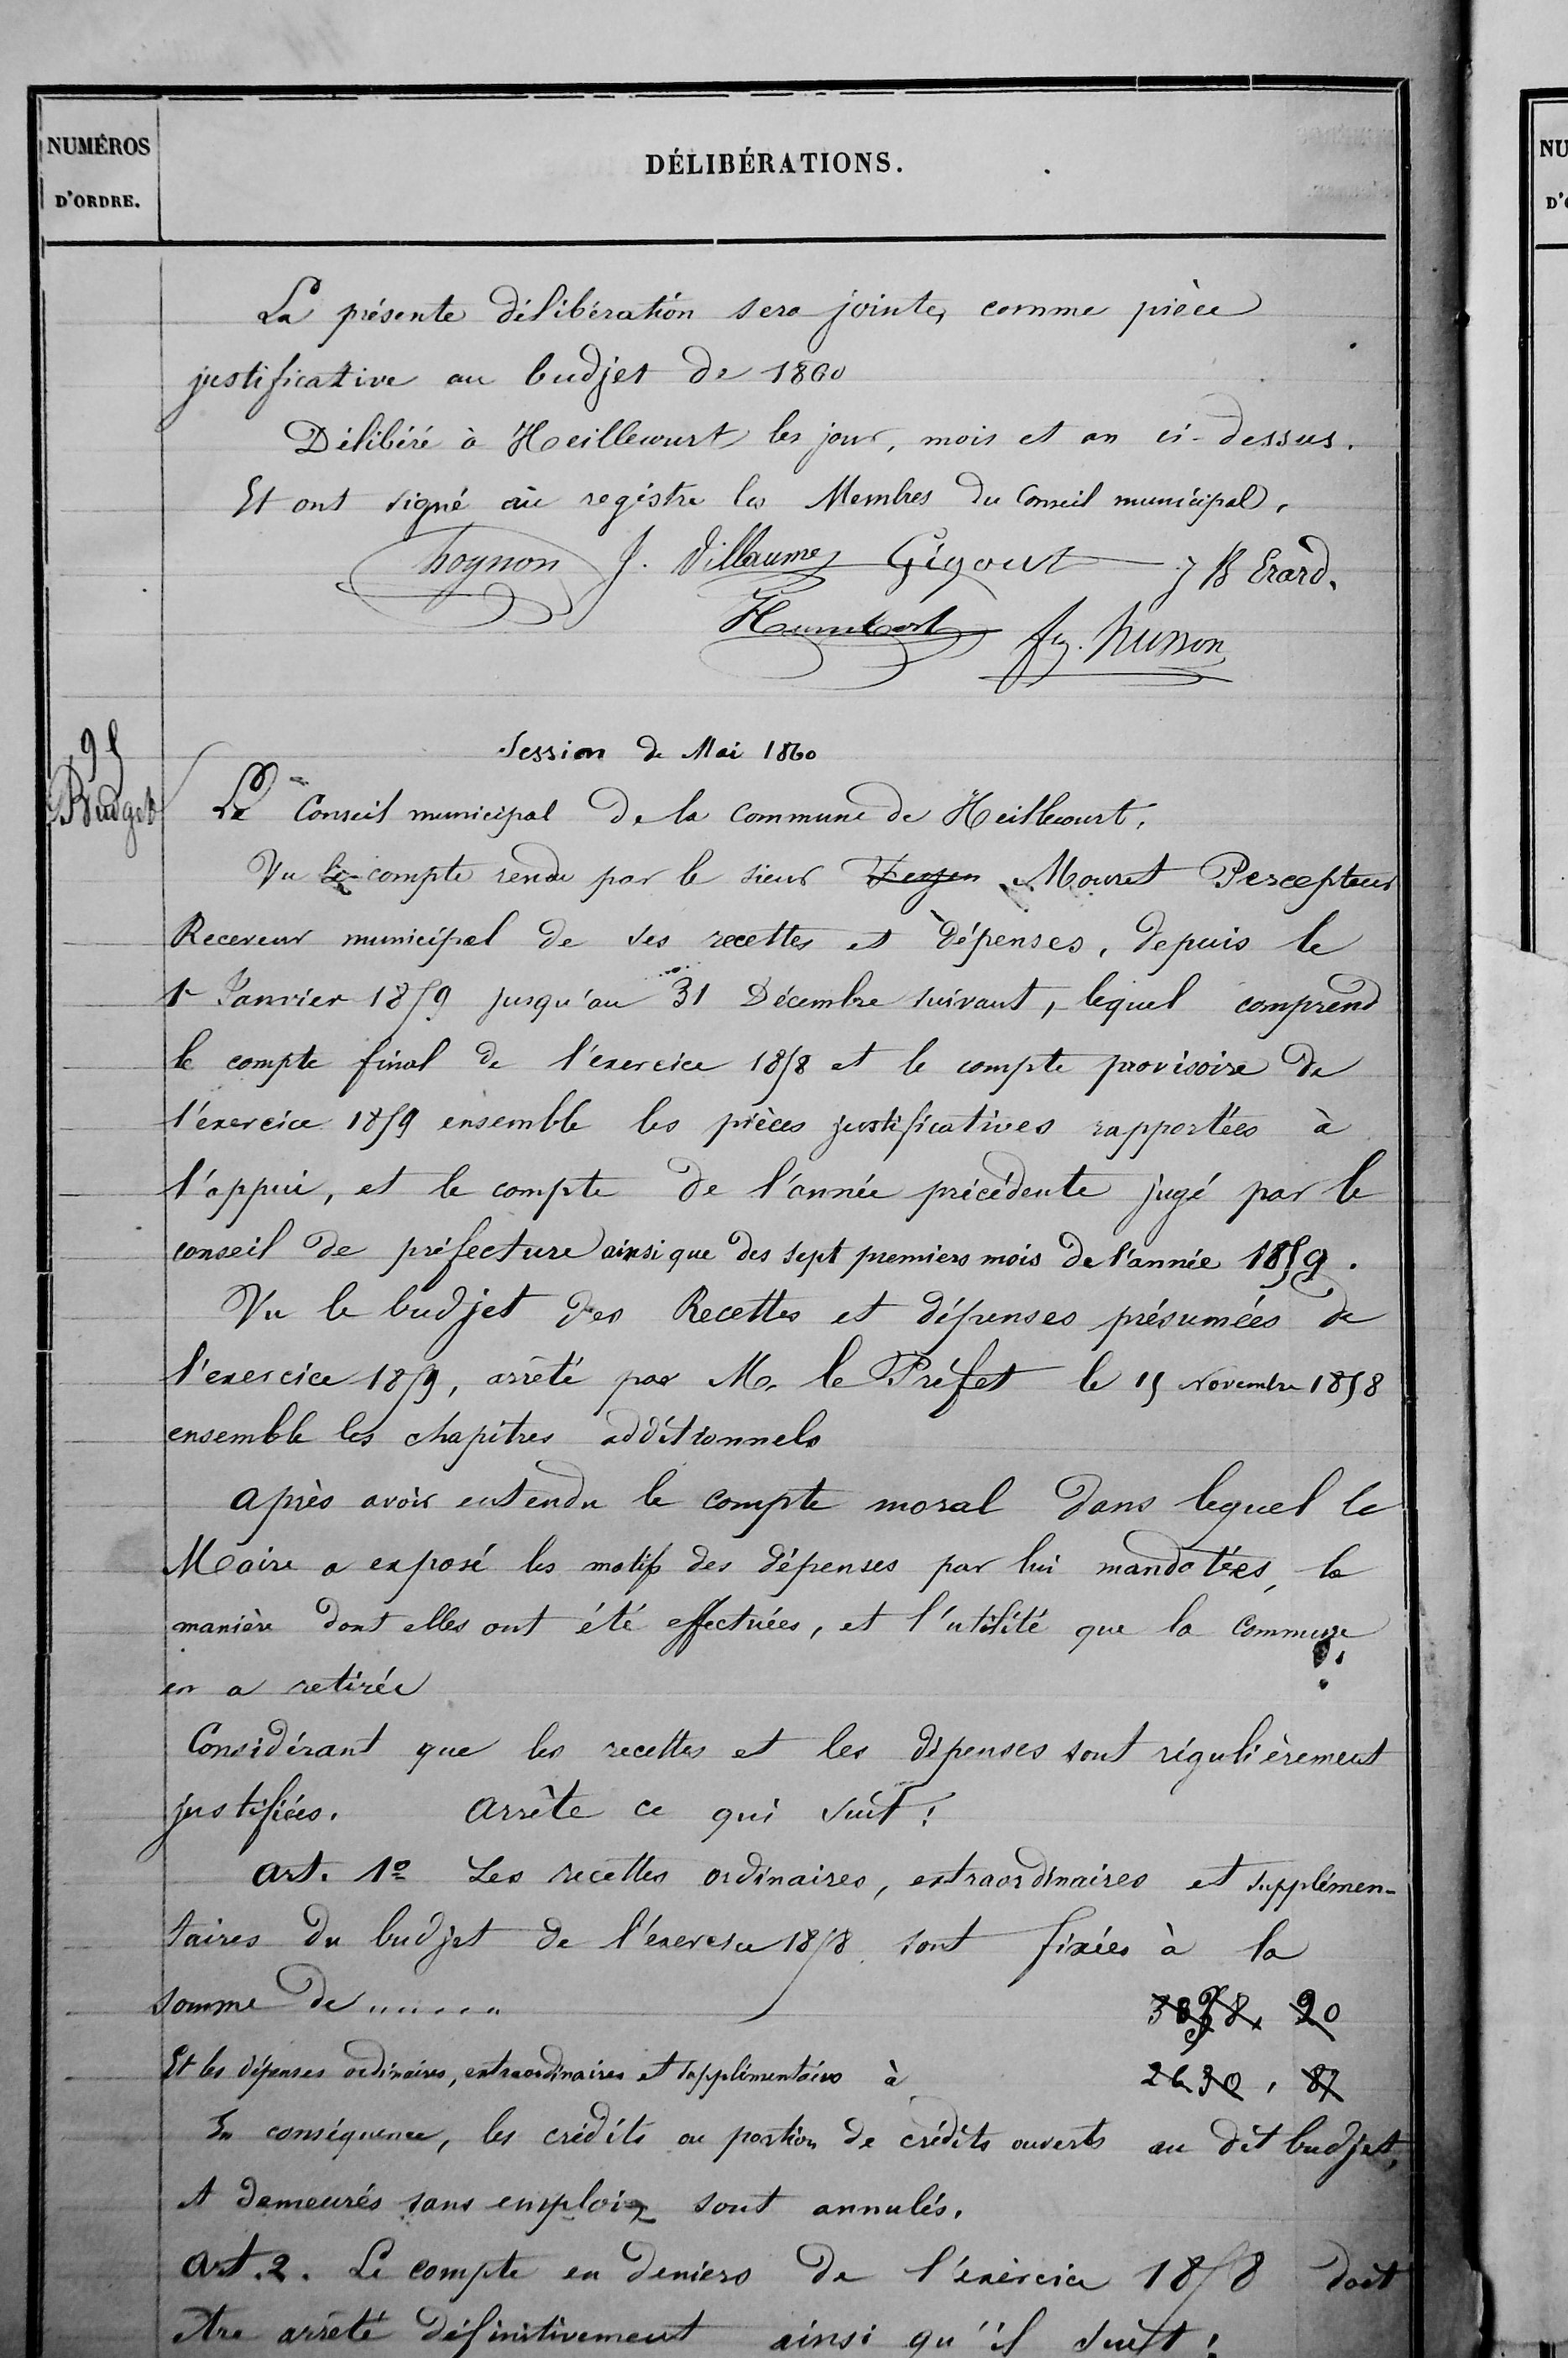 NUMÉROS
D'ORDRE.
DÉLIBÉRATIONS.
La présente délibération sera jointe, comme pièce
justificative au budjet de 1860
Délibéré à Heillecourt les jour, mois et an ci-dessus.
Et ont signé au registre les Membres du Conseil municipal.
Thognon J. Villaume Gigout J B Erard.
Humbert fs. husson
95
Budget
Session de Mai 1860
Le Conseil municipal de la commune de Heillecourt,
Vu le compte rendu par le sieur Mouret Percepteur
Receveur municipal de ses recettes et dépenses, depuis le
1r Janvier 1859 jusqu'au 31 Décembre suivant, lequel comprend
le compte final de l'exercice 1858 et le compte provisoire de
l'exercice 1859 ensemble les pièces justificatives rapportées à
l'appui, et le compte de l'année précédente jugé par le
conseil de préfecture ainsi que des sept premiers mois de l'année 1859.
Vu le budjet des Recettes et dépenses présumées de
l'exercice 1859, arrêté par Mr le Préfet le 15 Novembre 1858
ensemble les chapitres additionnels
Après avoir entendu le compte moral dans lequel le
Maire a exposé les motifs des dépenses par lui mandatées, la
manière dont elles ont été effectuées, et l'utilité que la commune
en a retirée
Considérant que les recettes et les dépenses sont régulièrement
justifiées. Arrête ce qui suit:
Art. 1o Les recettes ordinaires, extraordinaires et supplémen-
taires du budjet de l'exercice 1858 sont fixées à la
somme de ...... 90
Et les dépenses ordinaires, extraordinaires et supplémentaires à 2630, 87
En conséquence, les crédits ou portion de crédits ouverts au dit budjet,
et demeurés sans emploi sont annulés.
Art. 2. Le compte en deniers de l'exercice 1858 doit
être arrêté définitivement ainsi qu'il suit:
NU
D'O